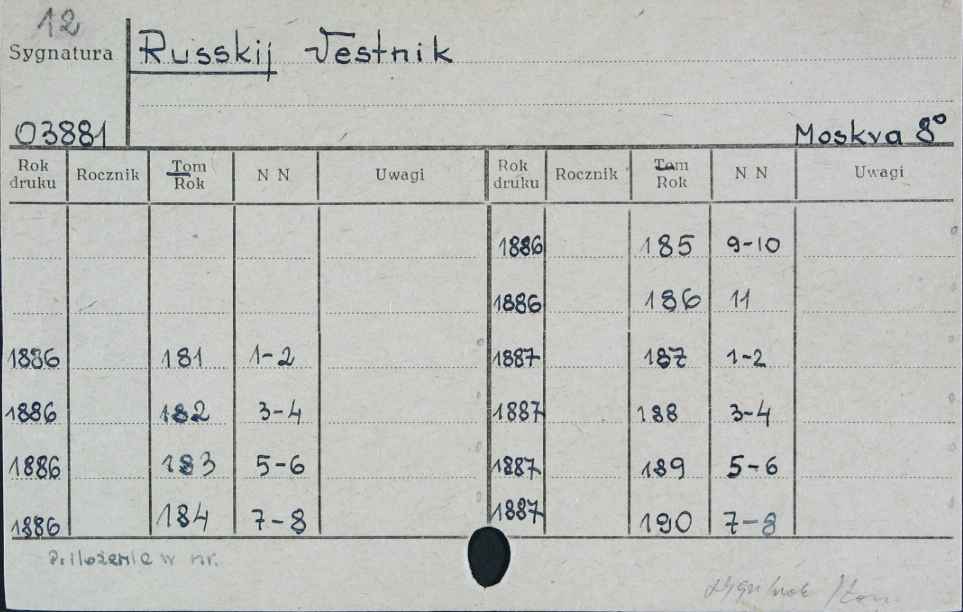 12
Sygnatura Russkij Vestnik
03881 Moskva 8°
Rok druku Rocznik Tom Rok N N Uwagi Rok druku Rocznik Tom Rok N N Uwagi
1886 185 9-10
1886 186 11
1886 181 1-2 1887 187 1-2
1886 182 3-4 1887 188 3-4
1886 183 5-6 1887 189 5-6
1886 184 7-8 1887 190 7-8
Priloženie w nr.